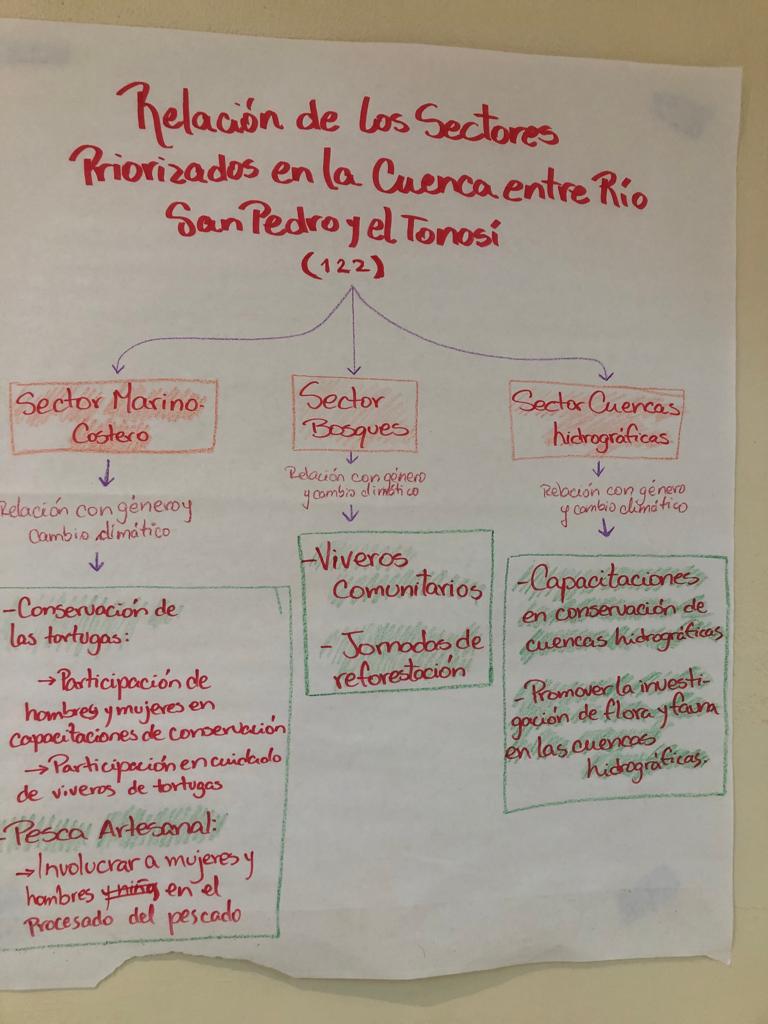 Relación de los Sectores
Priorizados en la Cuenca entre Río
San Pedro y el Tonosí
(122)
Sector Marino-
Costero
Relación con género y
Cambio climático
-Conservación de
las tortugas:
→Participación de
hombres y mujeres en
capacitaciones de conservación
→Participación en cuidado
de viveros de tortugas
-Pesca Artesanal:
→Involucrar a mujeres y
hombres y niños en el
Procesado del pescado
Sector
Bosques
Relación con género
y cambio climático
-Viveros
Comunitarios
- Jornadas de
reforestación
Sector Cuencas
hidrográficas
Relación con género
y cambio climático
-Capacitaciones
en conservación de
cuencas hidrográficas
-Promover la investi-
gación de flora y fauna
en las cuencas
hidrográficas.